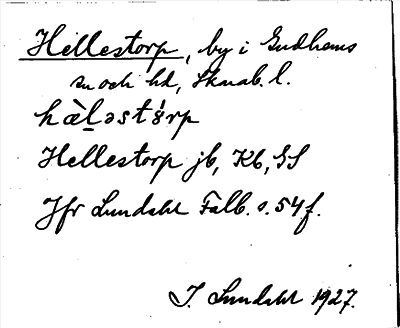 Hellestorp, by i Gudhems
sn och hd, Skarab. l.
hàl̠əstɵ́rp
Hellestorp jb, Kb, GS
Jfr Lundahl Falb. s. 54 f.
I. Lundahl 1927.